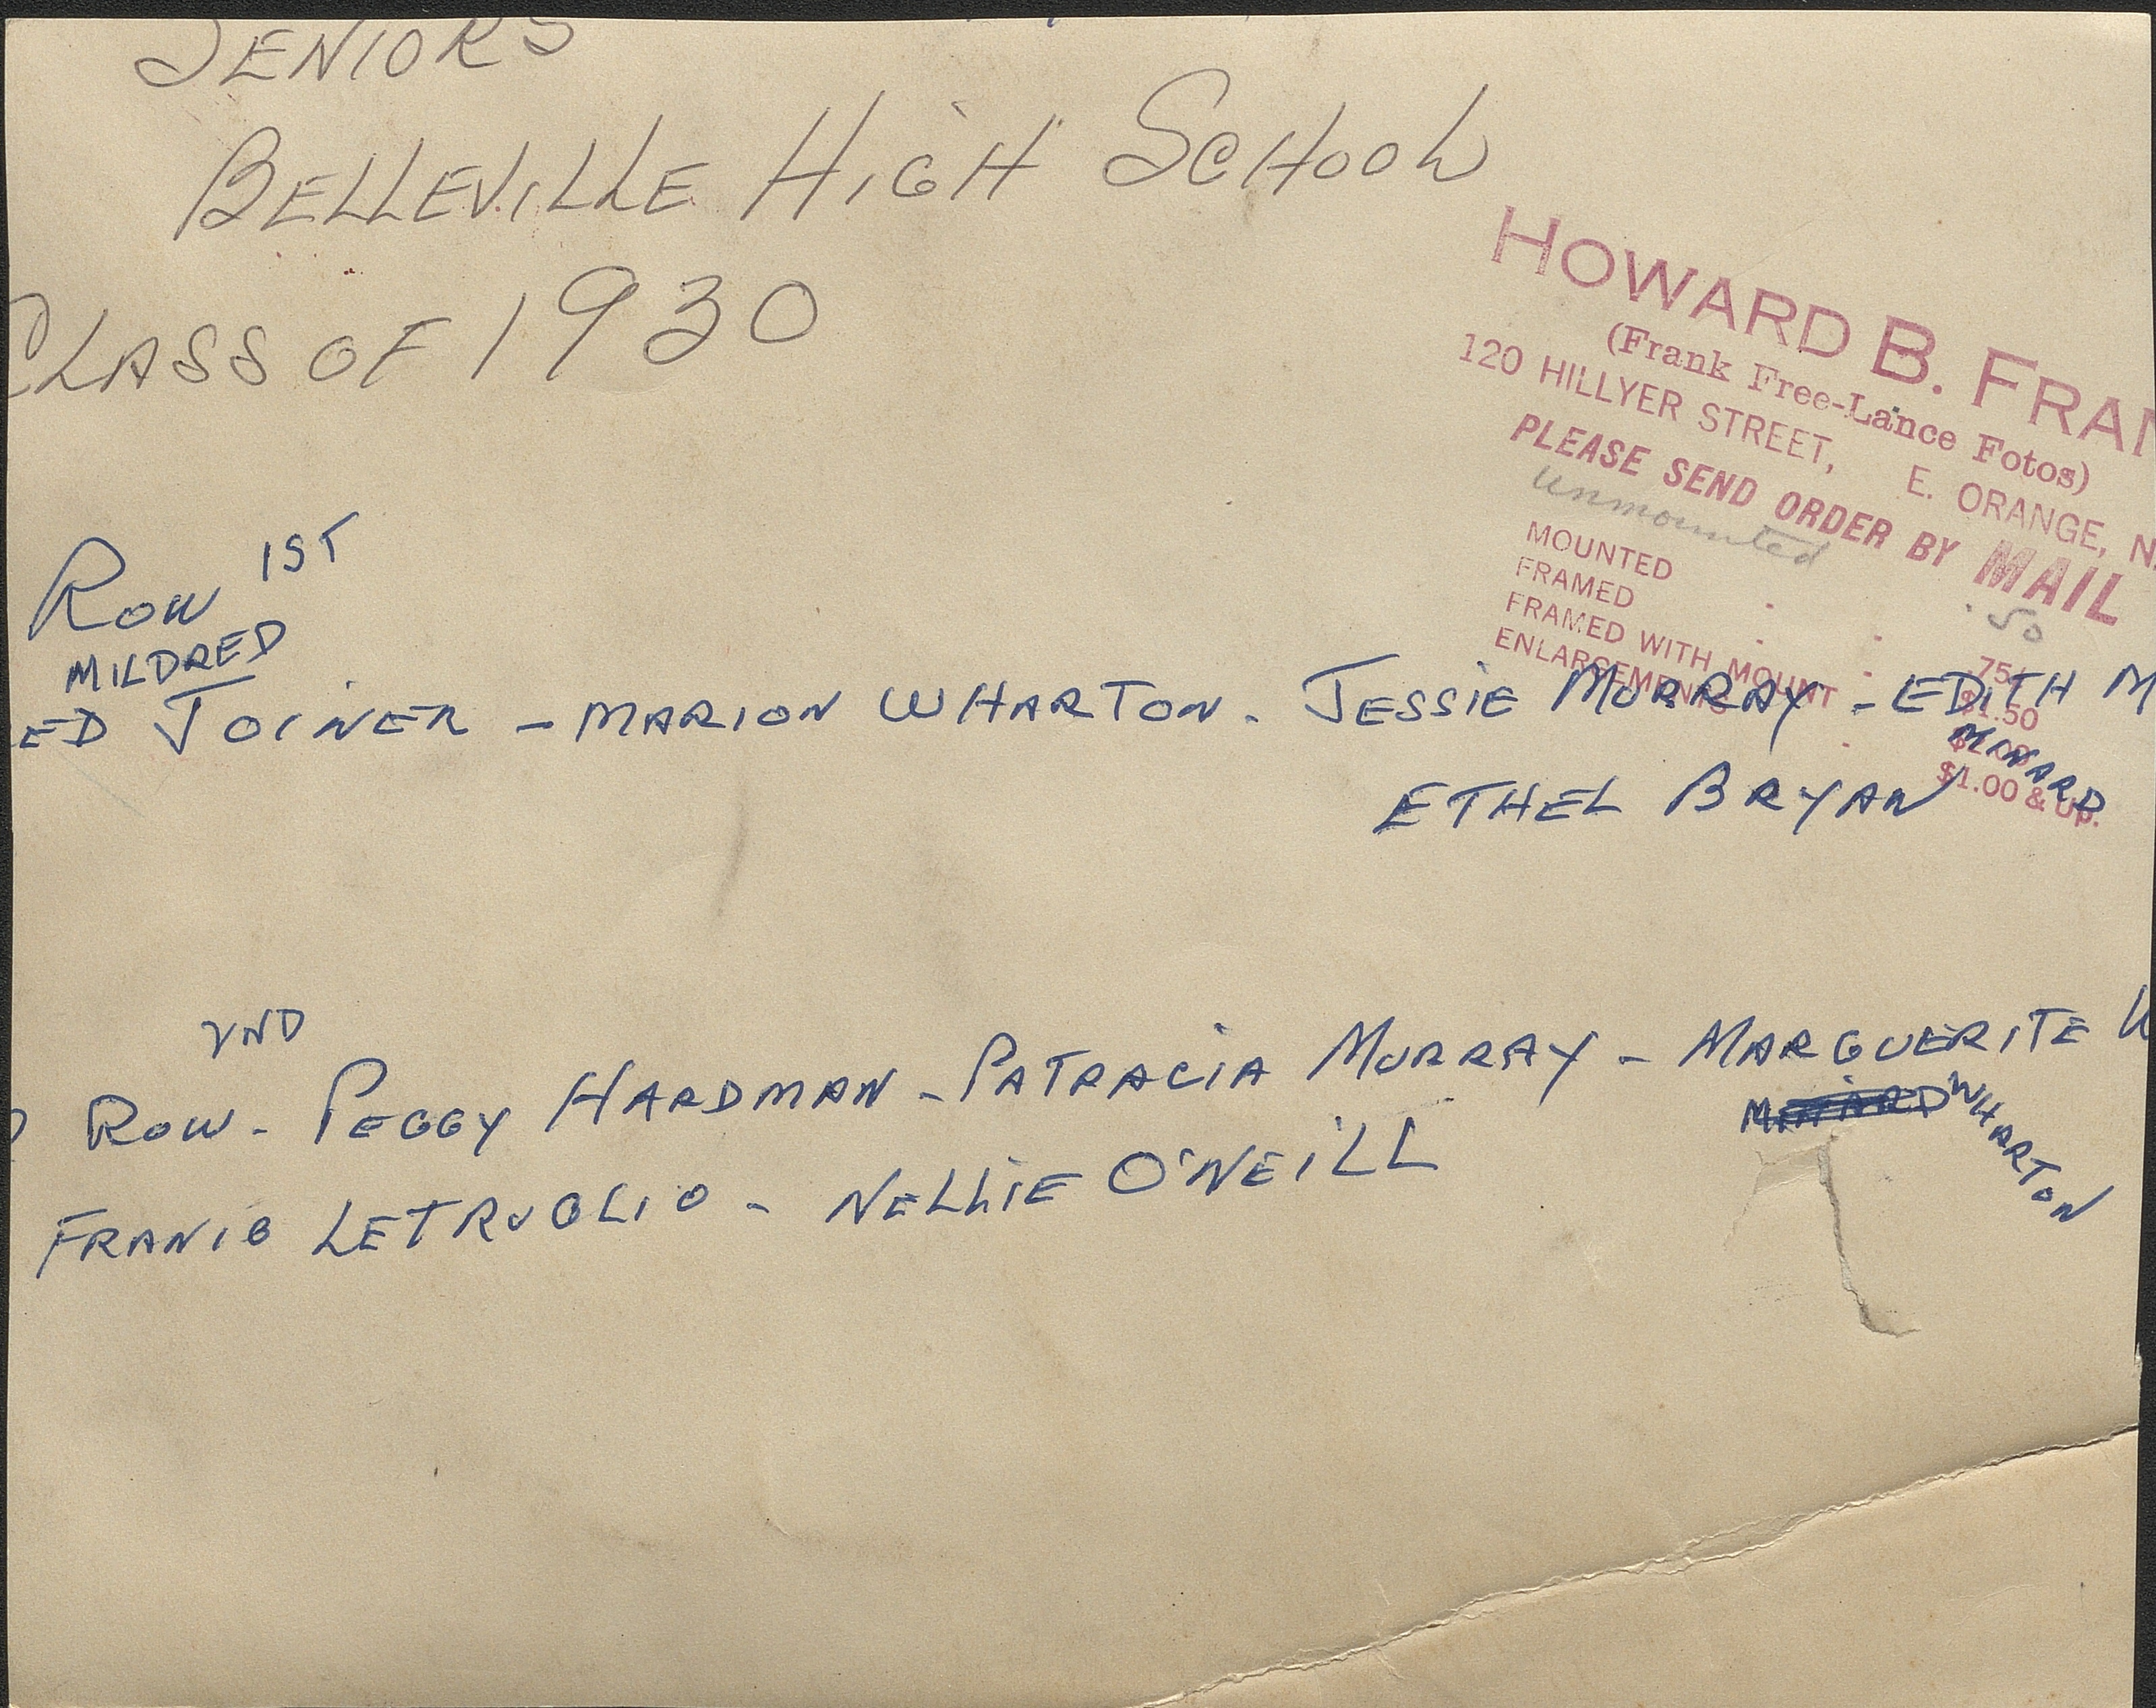 SENIORS
BELLEVILLE HIGH SCHOOL
CLASS OF 1930
HOWARD B. FRAN
(Frank Free-Lance Fotos)
120 HILLYER STREET, E. ORANGE, N.
PLEASE SEND ORDER BY MAIL
unmounted .50
MOUNTED .75
FRAMED $1.50
FRAMED WITH MOUNT $2.00
ENLARGEMENTS $1.00 & Up.
ROW 1ST
MILDRED
ED JOINER - MARION WHARTON - JESSIE MURRAY - EDITH M
MINARD
ETHEL BRYAN
2ND
D ROW - PEGGY HARDMAN - PATRACIA MURRAY - MARGUERITE W
WHARTON
LETRUGLIO - NELLIE O'NEILL